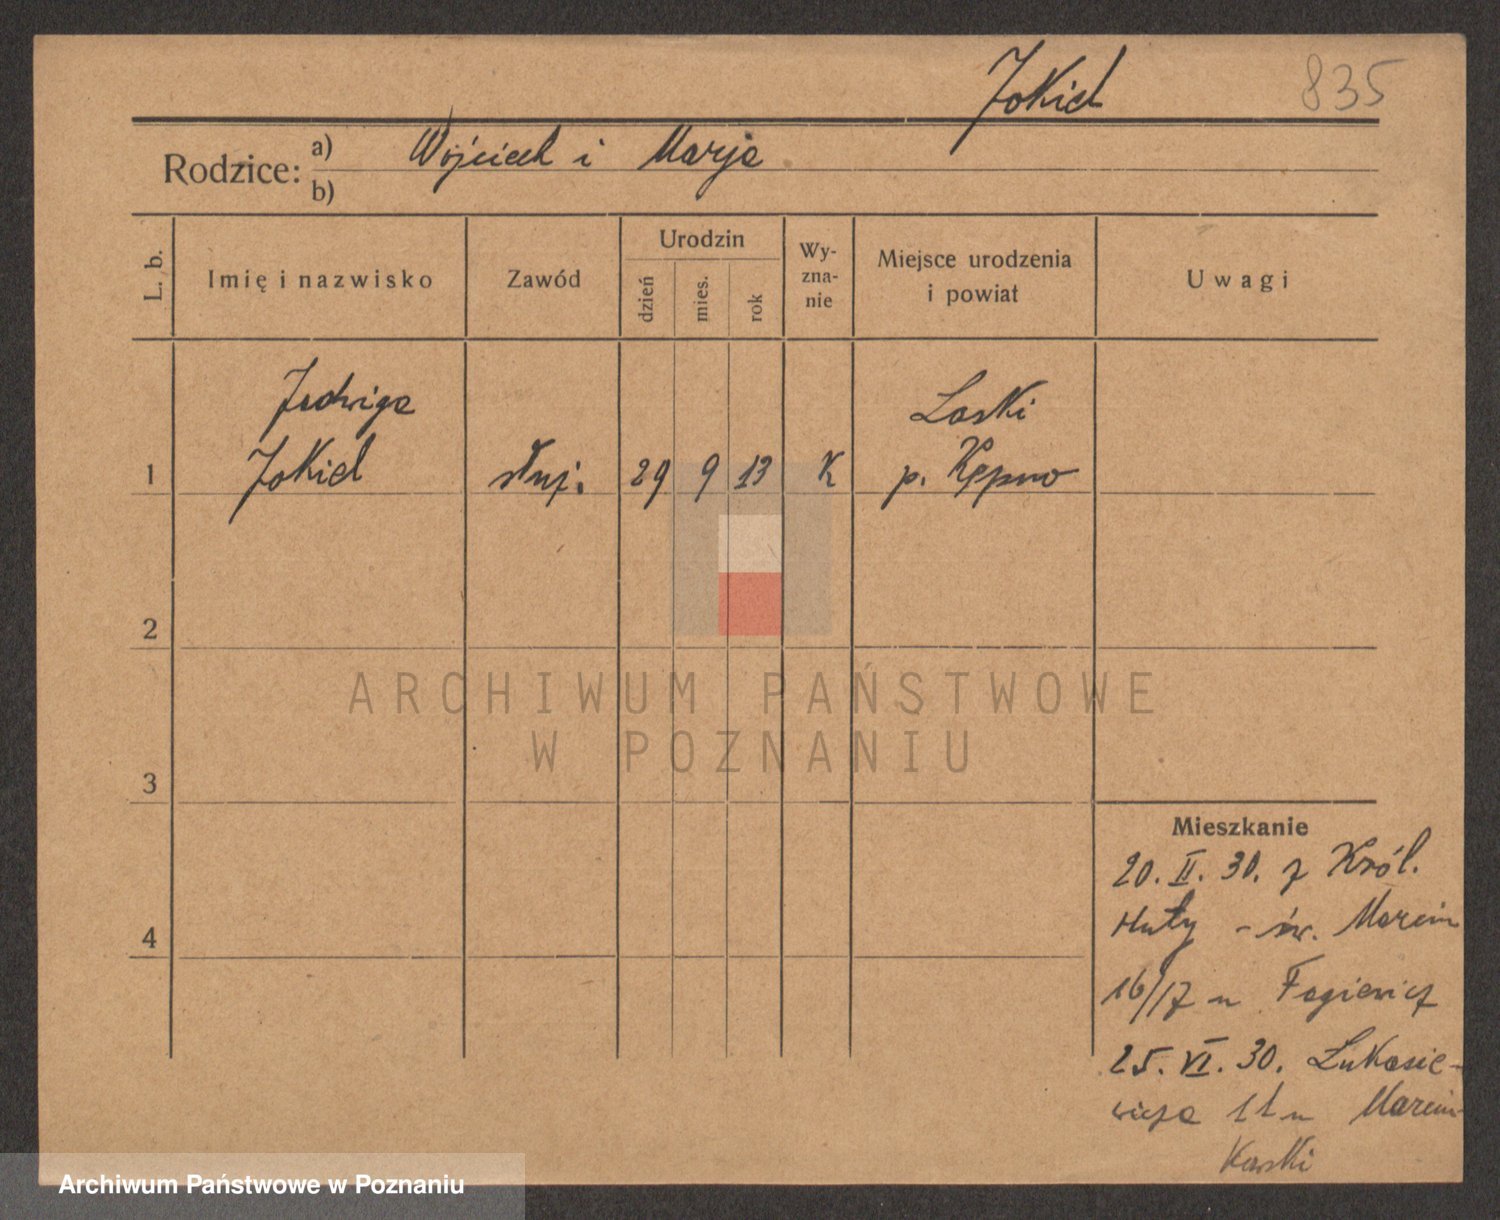 Jokiel 835
Rodzice: a) Wojciech i Marja
b)
L. b. Imię i nazwisko Zawód Urodzin dzień mies. rok Wy-zna-nie Miejsce urodzenia i powiat Uwagi
Jadwiga Laski
1 Jokiel służ. 29 9 13 K p. Kępno
2
ARCHIWUM PAŃSTWOWE
W POZNANIU
3
Mieszkanie
20. II. 30. z Król.
Huty - św. Marcin
4
16/17 u Fagiewicz
25. VI. 30. Łukasie-
wicza 11 u Marcin-
kowski
Archiwum Państwowe w Poznaniu